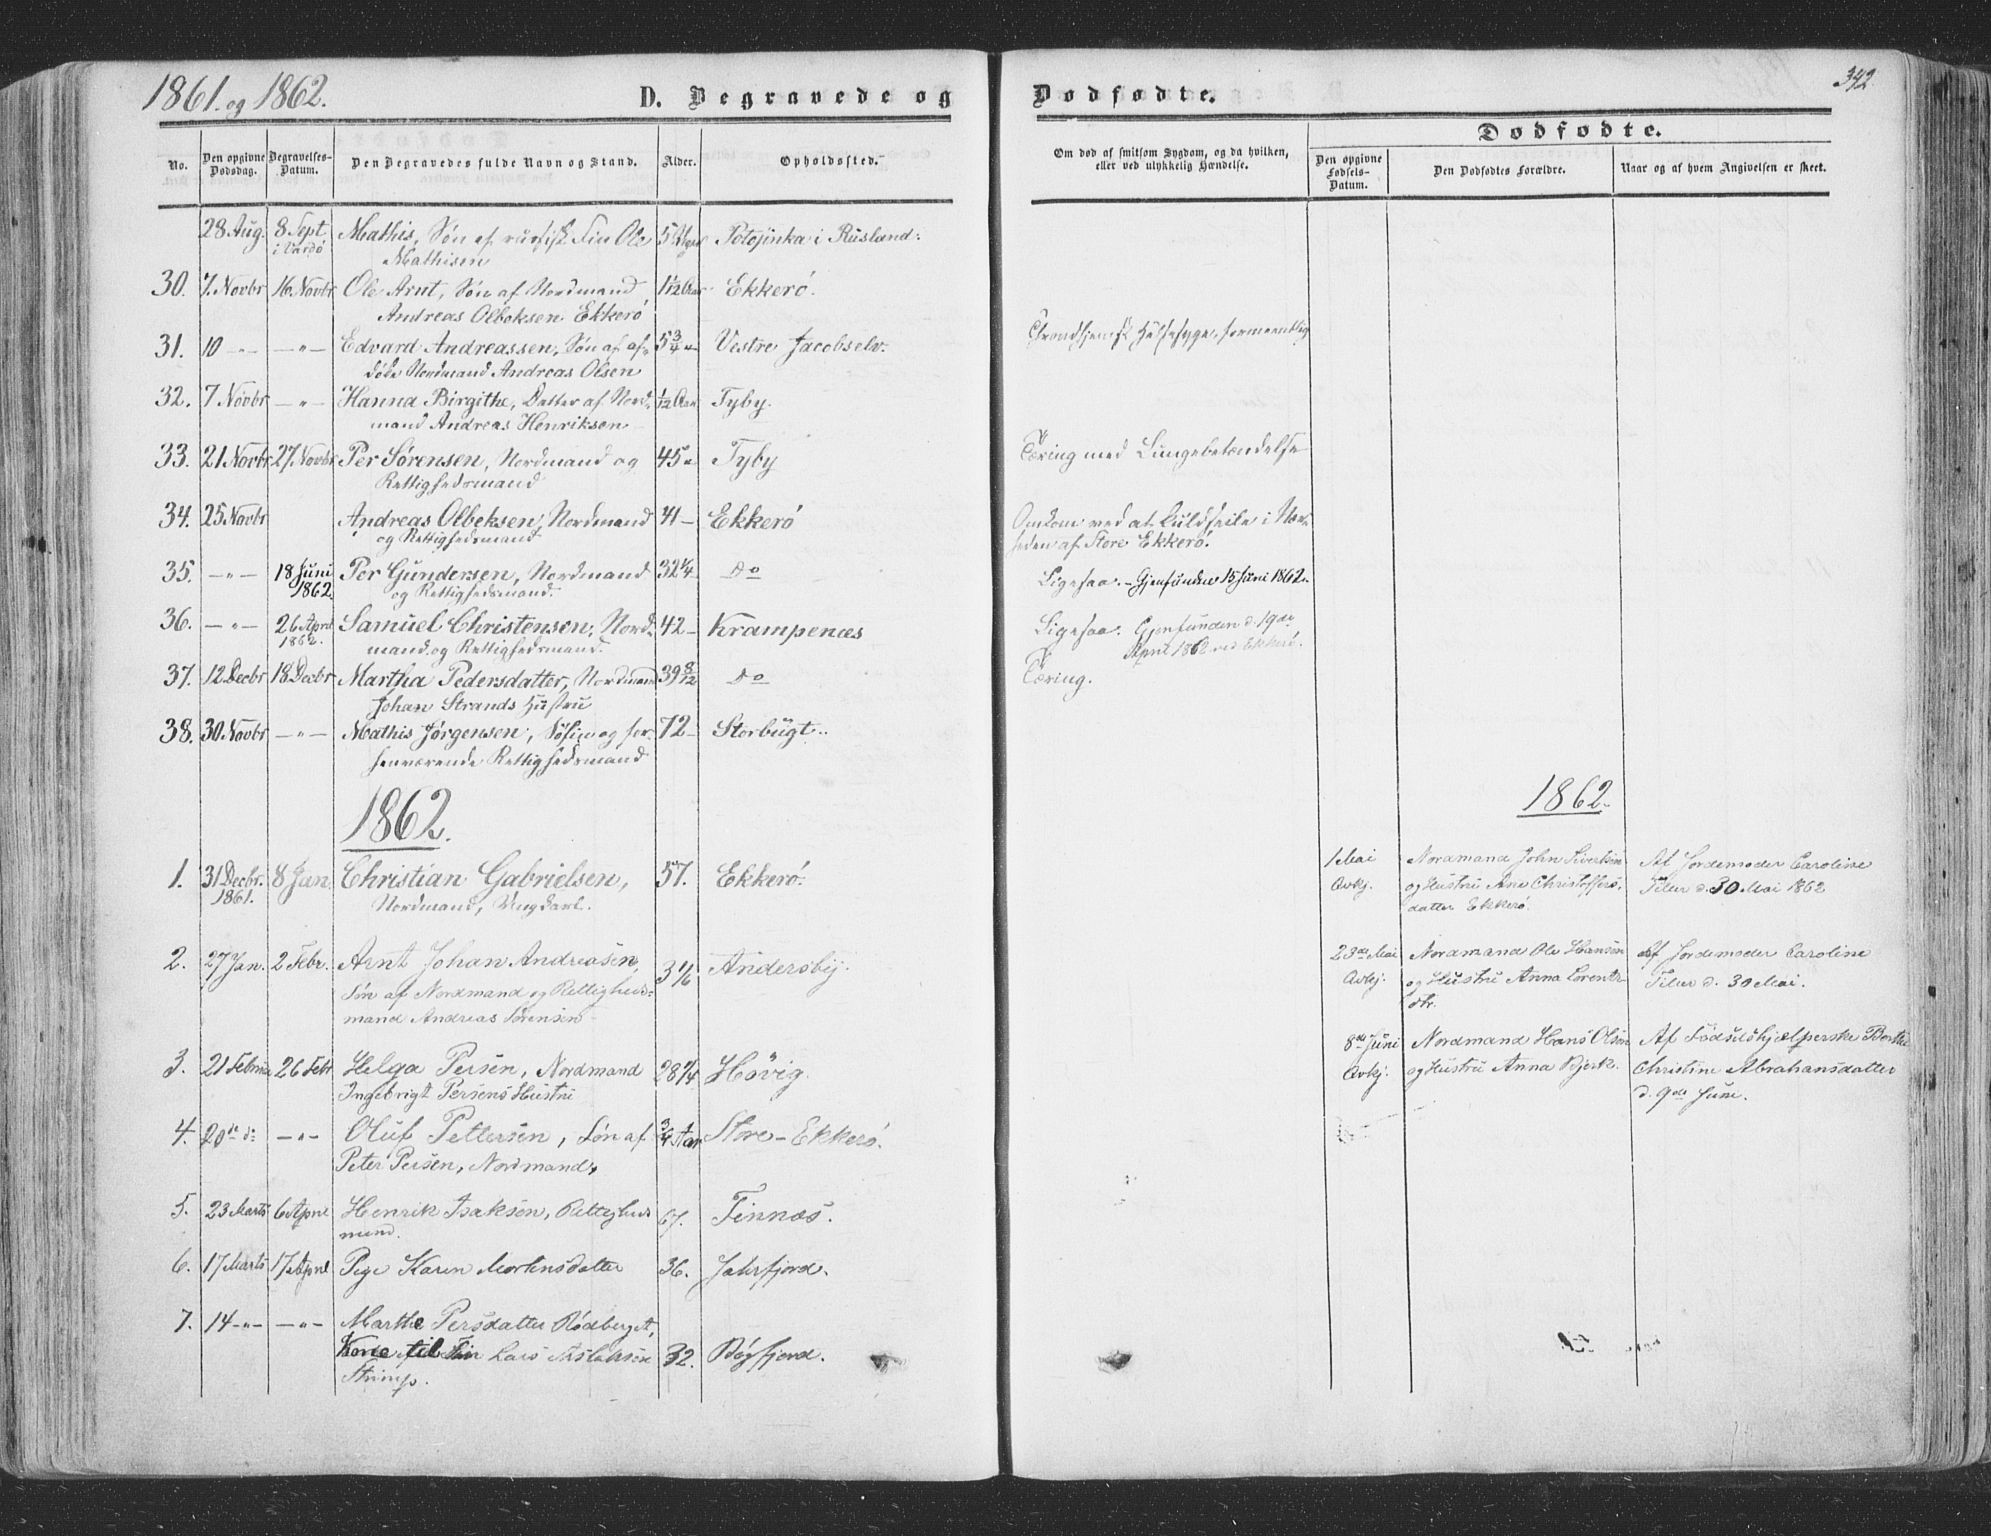 1861. og 1862.
D. Begravede og
Dødfødte.
342
No.
Den opgivne Dødsdag.
Begravelses-Datum.
Den Begravedes fulde Navn og Stand.
Alder.
Opholdssted.
Om død af smitsom Sygdom, og da hvilken,
eller ved ulykkelig Hændelse.
Dødfødte.
Den opgivne Fødsels-Datum.
Den Dødfødtes Forældre.
Naar og af hvem Angivelsen er skeet.
28 Aug. 8 Sept. Mathis, Søn af russisk Fin Ole 5 Potojinka i Rusland.
i Vardö Mathisen
30. 7. Novbr 16. Novbr Ole Arnt, Søn af Nordmand 1 1/12 Aar Ekkerö.
Andreas Olbeksen Ekkerö
31. 10 -"- -"- Edvard Andreassen, Søn af af- 5 3/4 " Vestre Jacobselv. Trondhjemsk Halsesyge, formeentlig
døde Nordmand Andreas Olsen
32. 7 Novbr -"- Hanna Birgithe, Datter af Nord- 1/12 Aar Tyby.
mand Andreas Henriksen
33. 21 Novbr 27. Novbr Per Sørensen, Nordmand og 45 " Tyby Tæring med Lungebetændelse
Rettighedsmand
34. 25 Novbr Andreas Olbeksen, Nordmand 41 - Ekkerö Omkom ved at kuldseile i Nær-
og Rettighedsmand heden af Store Ekkerö.
35. -"- 18 Juni Per Gundersen, Nordmand 32 1/4 Do Ligesaa. - Gjenfunden 15 Juni 1862.
1862. og Rettighedsmand.
36. -"- 26 April Samuel Christensen, Nord- 42 - Krampenæs Ligesaa. Gjenfunden d. 19de
1862. mand og Rettighedsmand. April 1862 ved Ekkerö.
37. 12 Decbr 18 Decbr Martha Pedersdatter, Nordmand 39 8/12 Do Tæring.
Johan Strands Hustru
38. 30 Novbr -"- Mathis Jørgensen, Søfin og for- 72 - Storbugt.
henværende Rettighedsmand
1862.
1862.
1. 31 Decbr. 8 Jan. Christian Gabrielsen, 57. Ekkerö.
1861. Nordmand, Ungkarl.
1 Mai Nordmand John Sivertsen Af Jordemoder Caroline
Qvkj. og Hustru Ane Christoffers- Tiller d. 30 Mai 1862
datter Ekkerö.
2. 27 Jan. 2 Febr. Arnt Johan Andreasen, 3 1/6 Andersby.
Søn af Nordmand og Rettigheds-
mand Andreas Sørensen
23de Mai Nordmand Ole Hansen Af Jordemoder Caroline
Qvkj. og Hustru Anna Lorents- Tiller d. 30 Mai.
dtr.
3. 21 Februar 26 Febr Helga Persen, Nordmand 28 1/4 Høvig.
Ingebrigt Persens Hustru
8de Juni Nordmand Hans Olsen Af Fødselshjælperske Berthe
Qvkj. og Hustru Anna Bjerk. Christine Abrahamsdatter
d. 9de Juni.
4. 20de d: -"- Oluf Pettersen, Søn af 3/4 Aar Store-Ekkerö.
Peter Persen, Nordmand,
5. 23 Marts 6 April Henrik Isaksen, Rettigheds 67. Finnæs.
mand.
6. 17 Marts 17 April Pige Karen Mortensdatter 36. Jahrfjord.
7. 14 -"- -"- Marthe Persdatter Rødberget,
Kone til Fin Lars Aslaksen 32. Bøgfjord.